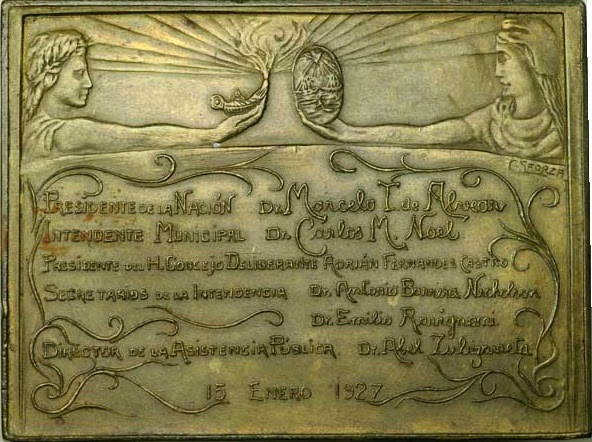 C. SFORZA
PRESIDENTE DE LA NACIÓN Dr. Marcelo T. de Alvear
INTENDENTE MUNICIPAL Dr. Carlos M. Noel
PRESIDENTE DEL H. CONCEJO DELIBERANTE ADRIÁN FERNANDES CASTRO
SECRETARIOS DE LA INTENDENCIA Dr. Antonio Barrera Nicholson
Dr. Emilio Ravignani
DIRECTOR DE LA ASISTENCIA PÚBLICA Dr. Abel Zubizarreta
15 ENERO 1927